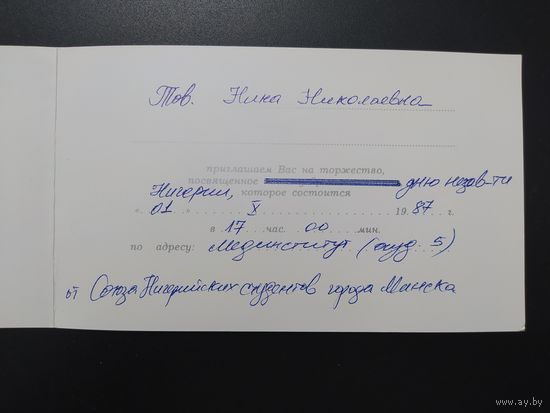 Тов. Нина Николаевна
приглашаем Вас на торжество,
посвященное дню незав-ти
Нигерии, которое состоится
«01» X 1987 г.
в 17 час. 00 мин.
по адресу: Мединститут (ауд. 5)
от Союза Нигерийских студентов города Минска
www.ay.by